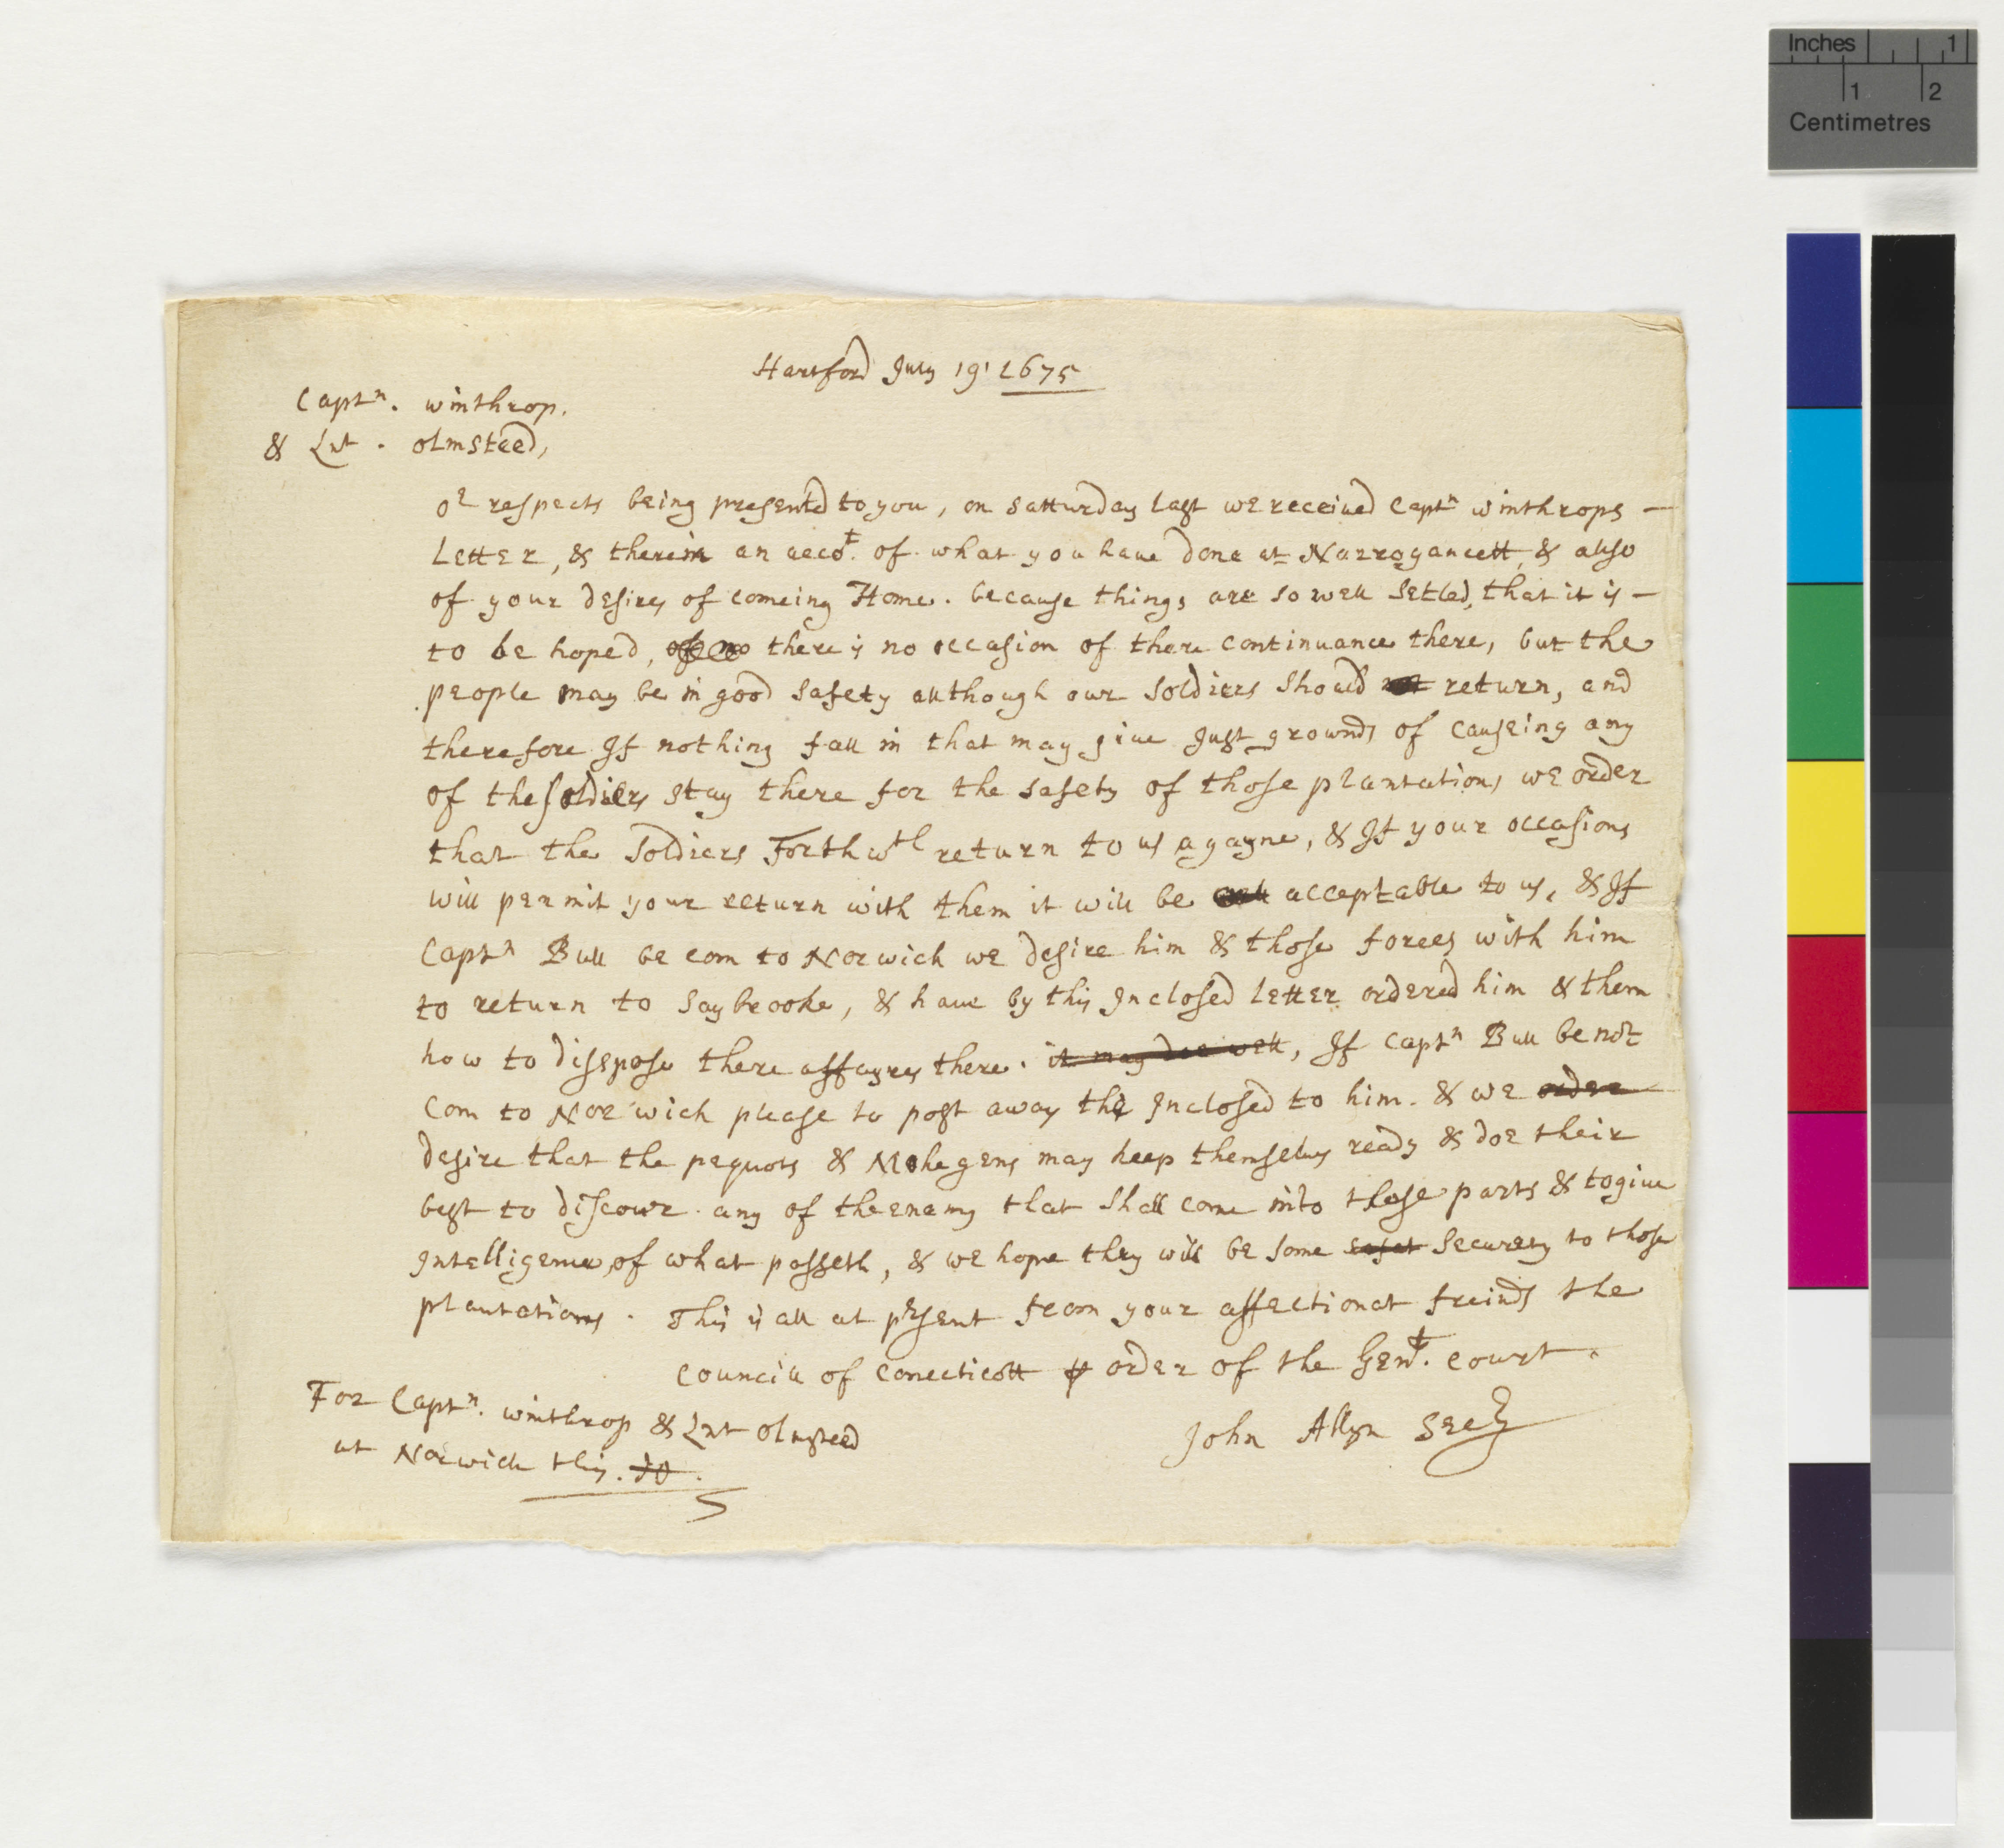 Inches 1
1 2
Centimetres
Hartford July 19: 1675
Captn. winthrop.
& Lnt. olmsteed,
or respects being presented to you, on satturday last we received Captn winthrops —
Letter, & therein an accot. of what you haue done at Narrogancett, & allso
of your desires of comeing Home. because things are so well setled, that it is —
to be hoped, there is no occasion of there continuance there, but the
people may be in good safety allthough our soldiers should not return, and
therefore If nothing fall in that may giue Just grownds of causeing any
of the soldiers stay there for the safety of those plantations we order
that the soldiers Forthwth return to us agayne, & If your occasions
will permit your return with them it will be well acceptable to us, & If
Captn Bull be com to Norwich we desire him & those forces with him
to return to saybrooke, & haue by this Inclosed letter ordered him & them
how to disspose there affayres there. it may doe well, If Captn Bull be not
com to Norwich please to post away the Inclosed to him. & we order
desire that the pequots & Mohegens may keep themselues ready & doe their
best to discouer any of the enemy that shall come into those parts & to giue
Intelligence, of what passeth, & we hope they will be some safet security to those
plantations. This is all at prsent from your affectionat freinds the
councill of Conecticott ꝑ order of the Gent. court.
John Allyn Secry
For Captn. winthrop & Lnt olmsteed
at Norwich this. dd.